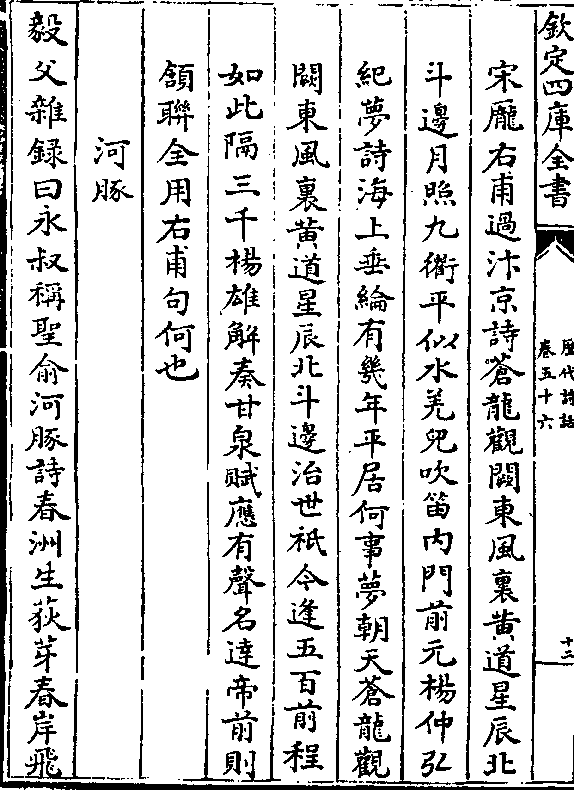 欽定四庫全書
歷代詩話
卷五十六
十二
宋龎右甫過汴京詩蒼龍觀闕東風裏黄道星辰北
斗邊月照九衢平似水羌兒吹笛内門前元楊仲弘
紀夢詩海上垂綸有幾年平居何事夢朝天蒼龍觀
闕東風裏黄道星辰北斗邊治世祇今逢五百前程
如此隔三千楊雄解奏甘泉賦應有聲名達帝前則
頷聯全用右甫句何也
河豚
毅父雜録曰永叔稱聖俞河豚詩春洲生荻芽春岸飛